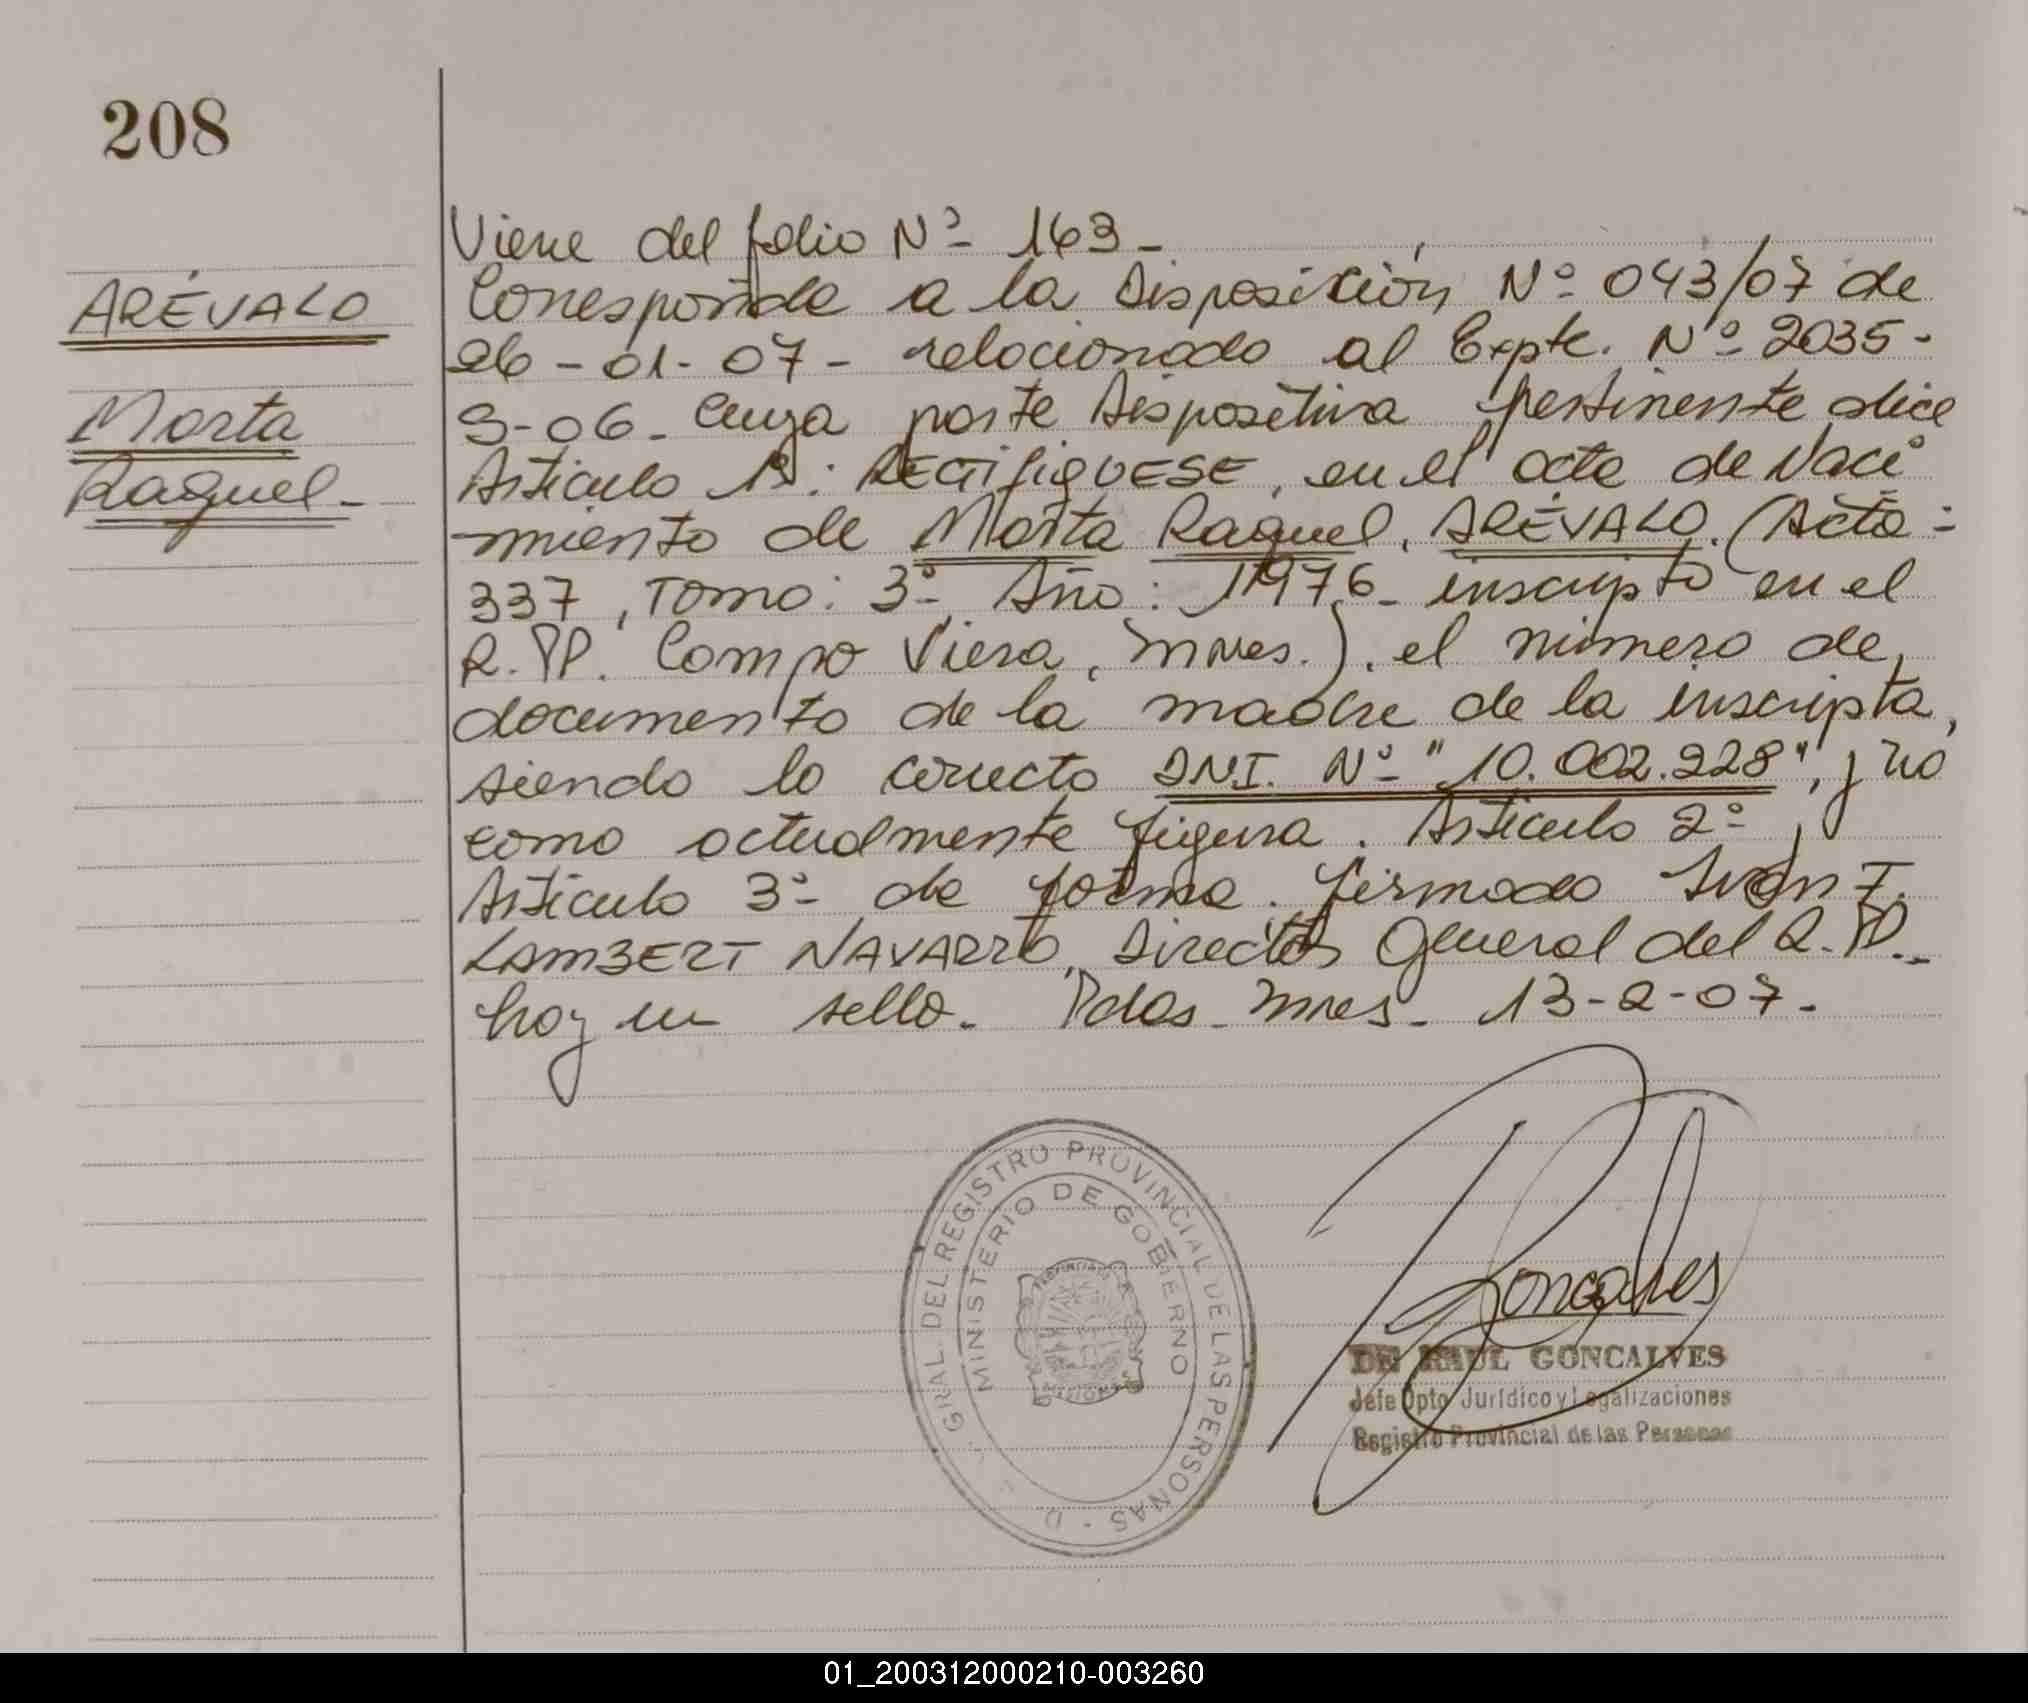 208
ARÉVALO
Marta
Raquel-
Viene del folio Nº 163-
Corresponde a la Disposición Nº 043/07 de
26-01-07- relacionado al Expte. Nº 2035-
S-06- Cuya parte Dispositiva pertinente dice
Artículo 1º: RECTIFIQUESE, en el acta de Naci
miento de Marta Raquel, ARÉVALO. (Acta:
337, Tomo: 3º Año: 1976- inscripto en el
R.PP. Campo Viera, Mnes.). el número de
documento de la madre de la inscripta,
siendo lo correcto DNI. Nº "10.002.228", y no
como actualmente figura. Artículo 2º y
Artículo 3º de forma. firmado Iván F.
LAMBERT NAVARRO, Director General del R.PP.-
hay un sello. Pdas- Mnes- 13-2-07.
GRAL. DEL REGISTRO PROVINCIAL DE LAS PERSONAS - D
MINISTERIO DE GOBIERNO
Goncalves
DR RAUL GONCALVES
Jefe Dpto Jurídico y Legalizaciones
Registro Provincial de las Personas
01_200312000210-003260